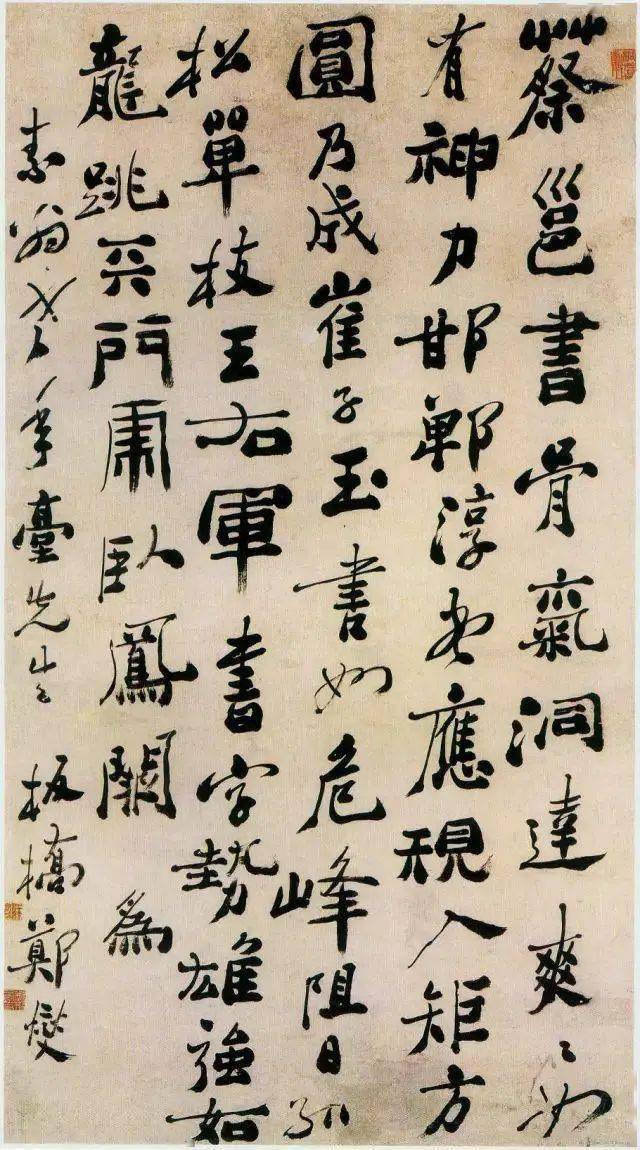 蔡邕書骨氣洞達爽〻如
有神力邯鄲淳書應規入矩方
圓乃成崔子玉書如危峰阻日孤
松單枝王右軍書字勢雄強如
龍跳天門虎臥鳳闕 為
素翁年臺先生 板橋鄭燮